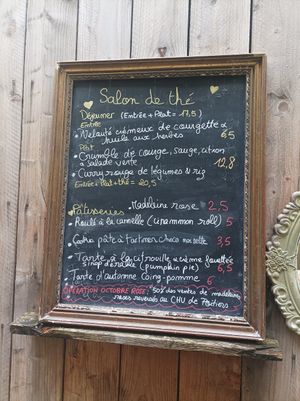 Salon de thé
Déjeuner (Entrée + Plat = 17,5)
Entrée
• Velouté crémeux de courgette &
huile aux herbes 6,5
Plat
• Crumble de courge, sauge, citron
& salade verte 12,8
• Curry rouge de légumes & riz
Entrée + plat + thé = 20,5
Pâtisseries • Madeleine rose 2,5
• Roulé à la cannelle (cinnamon roll) 5
• pâte à tartiner choco noisette 3,5
• Tarte à la citrouille & crème fouettée
sirop d'érable (pumpkin pie) 6,5
• Tarte d'automne Coing-pomme 6
OPÉRATION OCTOBRE ROSE : 50% des ventes de madeleines
roses reversés au CHU de Poitiers